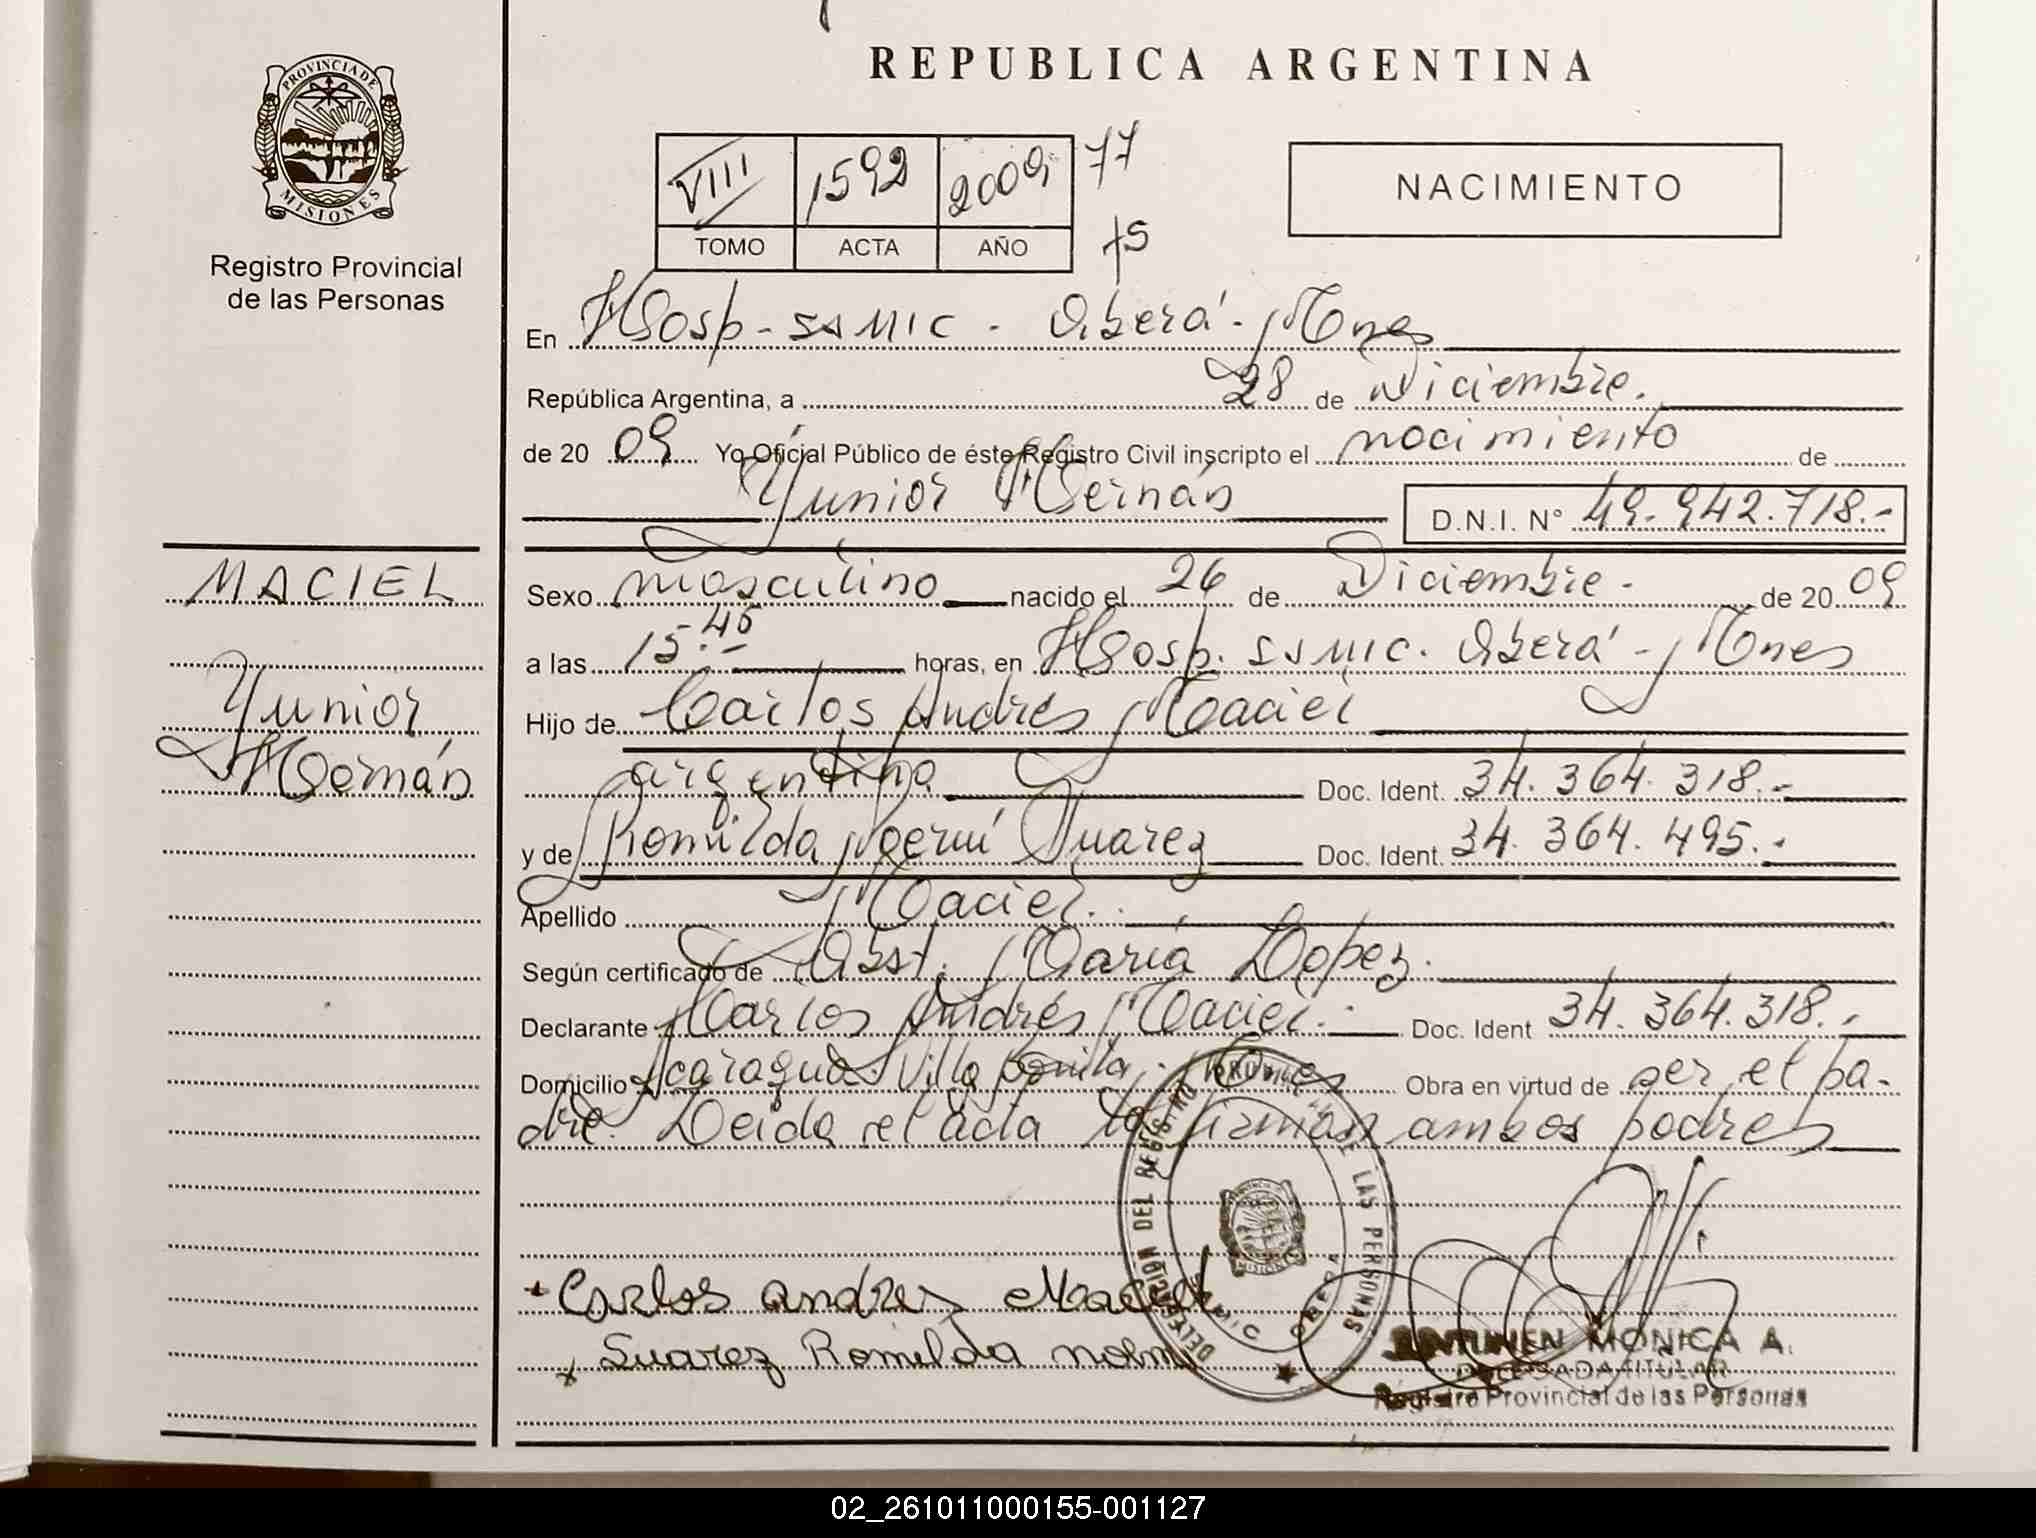 REPUBLICA ARGENTINA
PROVINCIA DE
MISIONES
Registro Provincial
de las Personas
VIII 1592 2009 77
TOMO ACTA AÑO 75
NACIMIENTO
En Hosp - SAMIC - Oberá - Mnes
República Argentina, a 28 de Diciembre.
de 20 09 Yo Oficial Público de éste Registro Civil inscripto el nacimiento de
Yunior Hernán D.N.I. N° 49.942.718.-
MACIEL
Yunior
Hernán
Sexo masculino nacido el 26 de Diciembre - de 20 09
a las 15.45 horas, en Hosp. SAMIC. Oberá - Mnes
Hijo de Carlos Andrés Maciel
argentina Doc. Ident. 34.364.318.-
y de Romilda Noemí Suarez Doc. Ident. 34.364.495.-
Apellido Maciel.
Según certificado de Obst. María Lopez.
Declarante Carlos Andrés Maciel. Doc. Ident 34.364.318.-
Domicilio Acaragua. Villa Bonita. Mnes Obra en virtud de ser el pa-
dre. Leida el acta la firman ambos padres
DELEGACIÓN DEL REGISTRO PROVINCIAL DE LAS PERSONAS
SAMIC OBERA
MISIONES
Carlos andres Maciel
x Suarez Romilda noemi
MONICA A.
DELEGADA TITULAR
Registro Provincial de las Personas
02_261011000155-001127